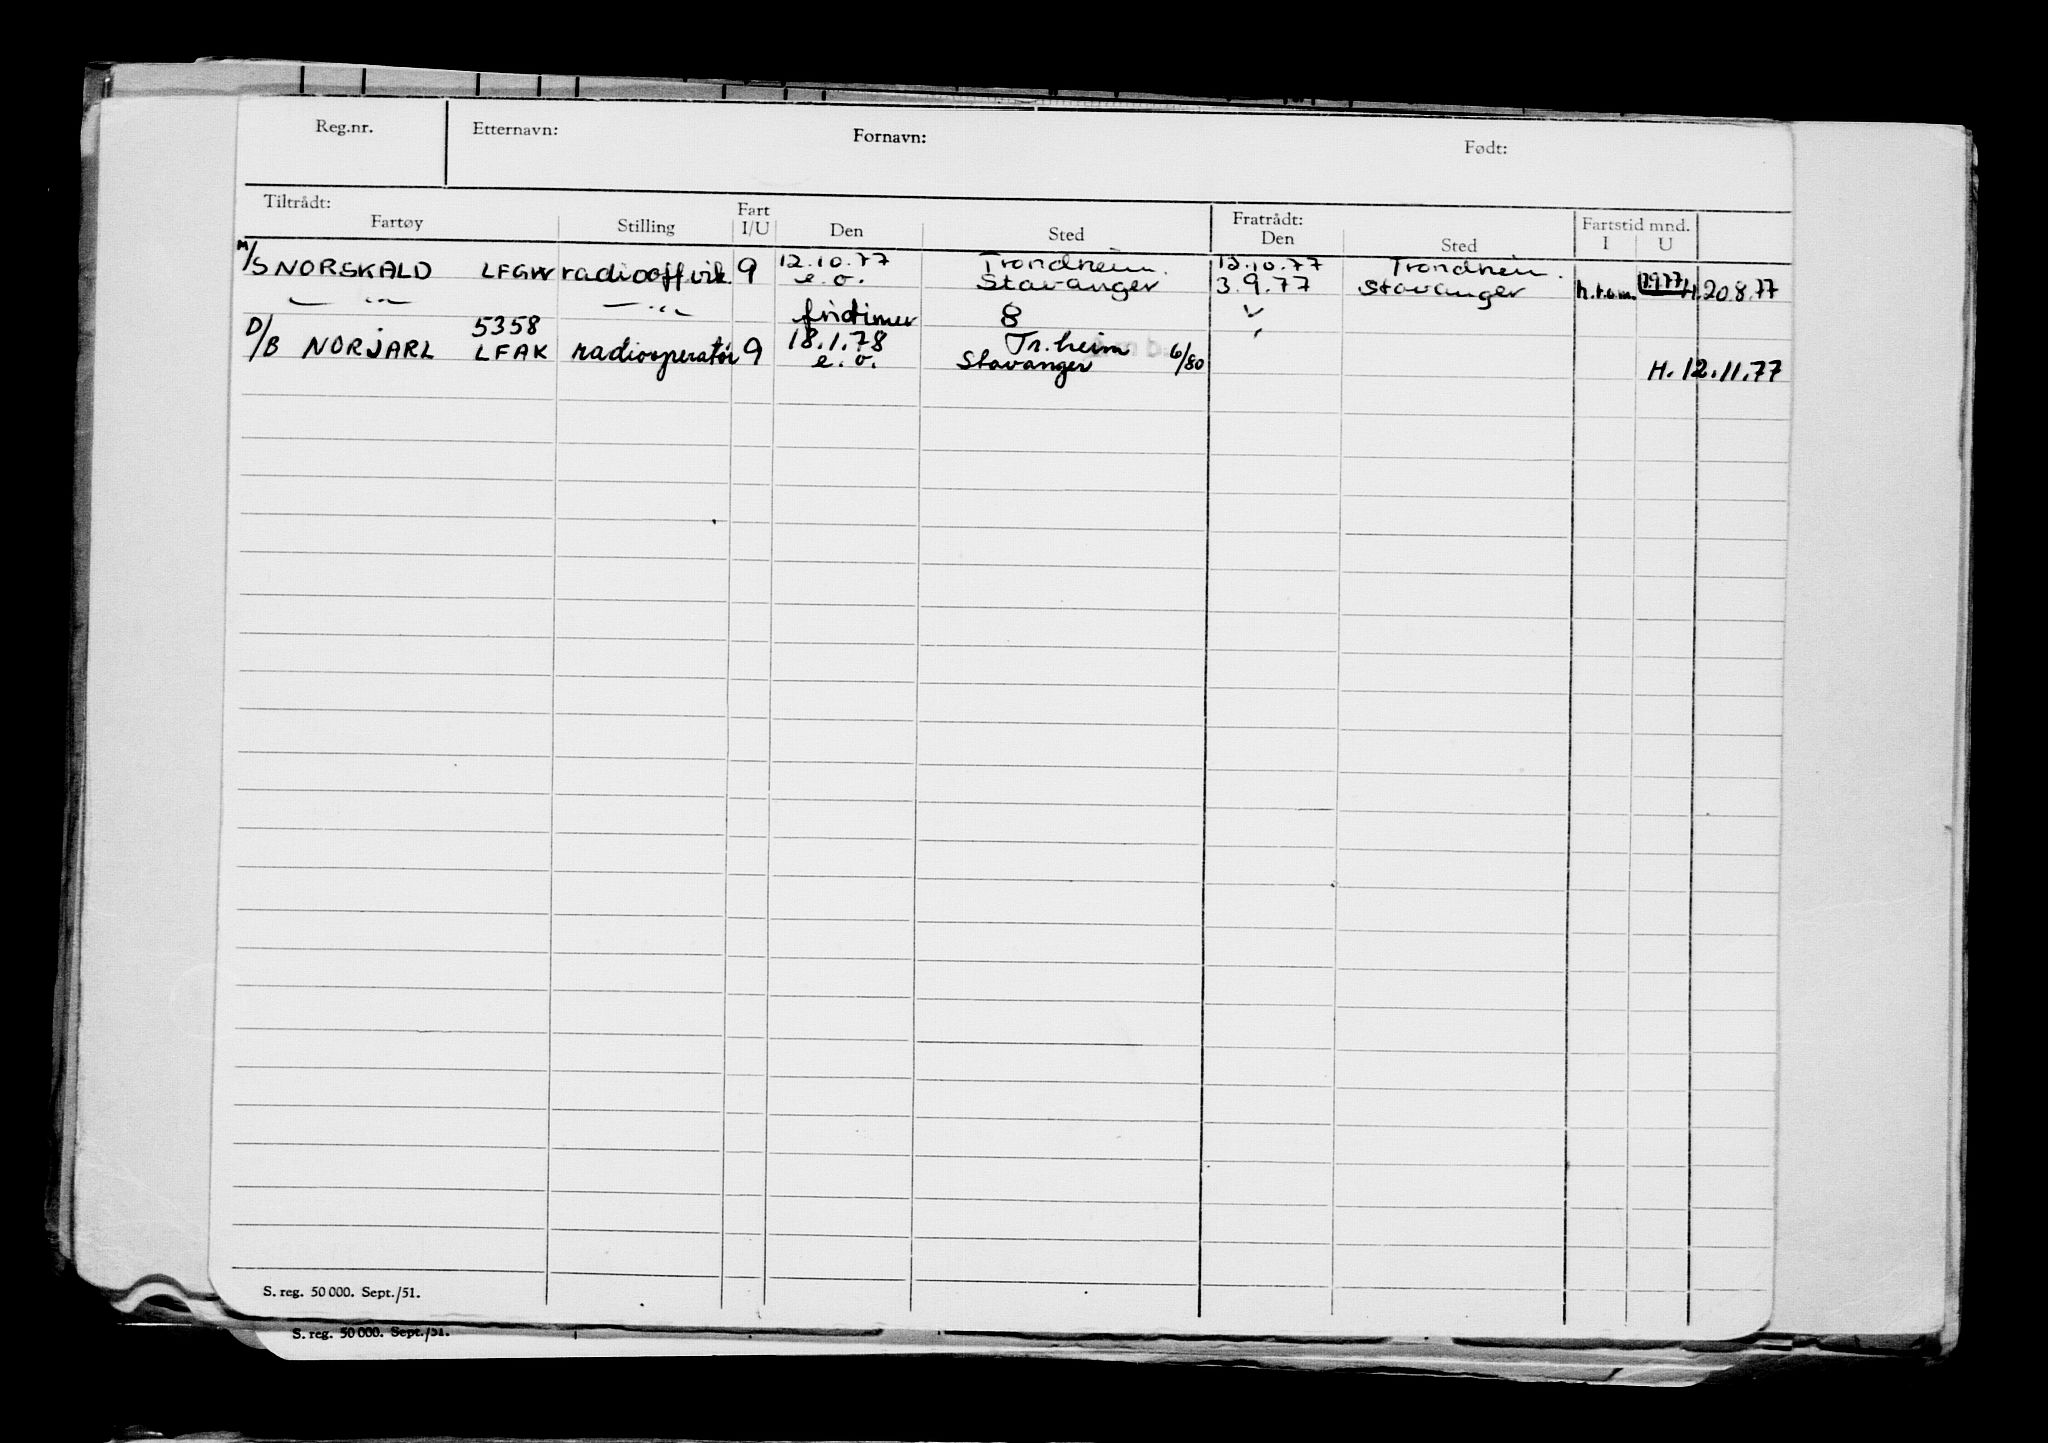 Reg.nr. Etternavn: Fornavn: Født:
Tiltrådt: Fratrådt:
Fartøy Stilling Fart I/U Den Sted Den Sted Fartstid mnd. I U
12.10.77 Trondheim. 12.10.77 Trondheim.
M/S NORSKALD LFGW radiooff vik 9 e.o. Stavanger 3.9.77 Stavanger h.t.o.m. H. 20.8.77
— " — — " — fridtimer 8
D/B 5358 18.1.78 Tr.heim
NORJARL LFAK radiooperatør 9 e.o. Stavanger 6/80 H. 12.11.77
S. reg. 50 000. Sept./51.
S. reg. 50 000. Sept./51.